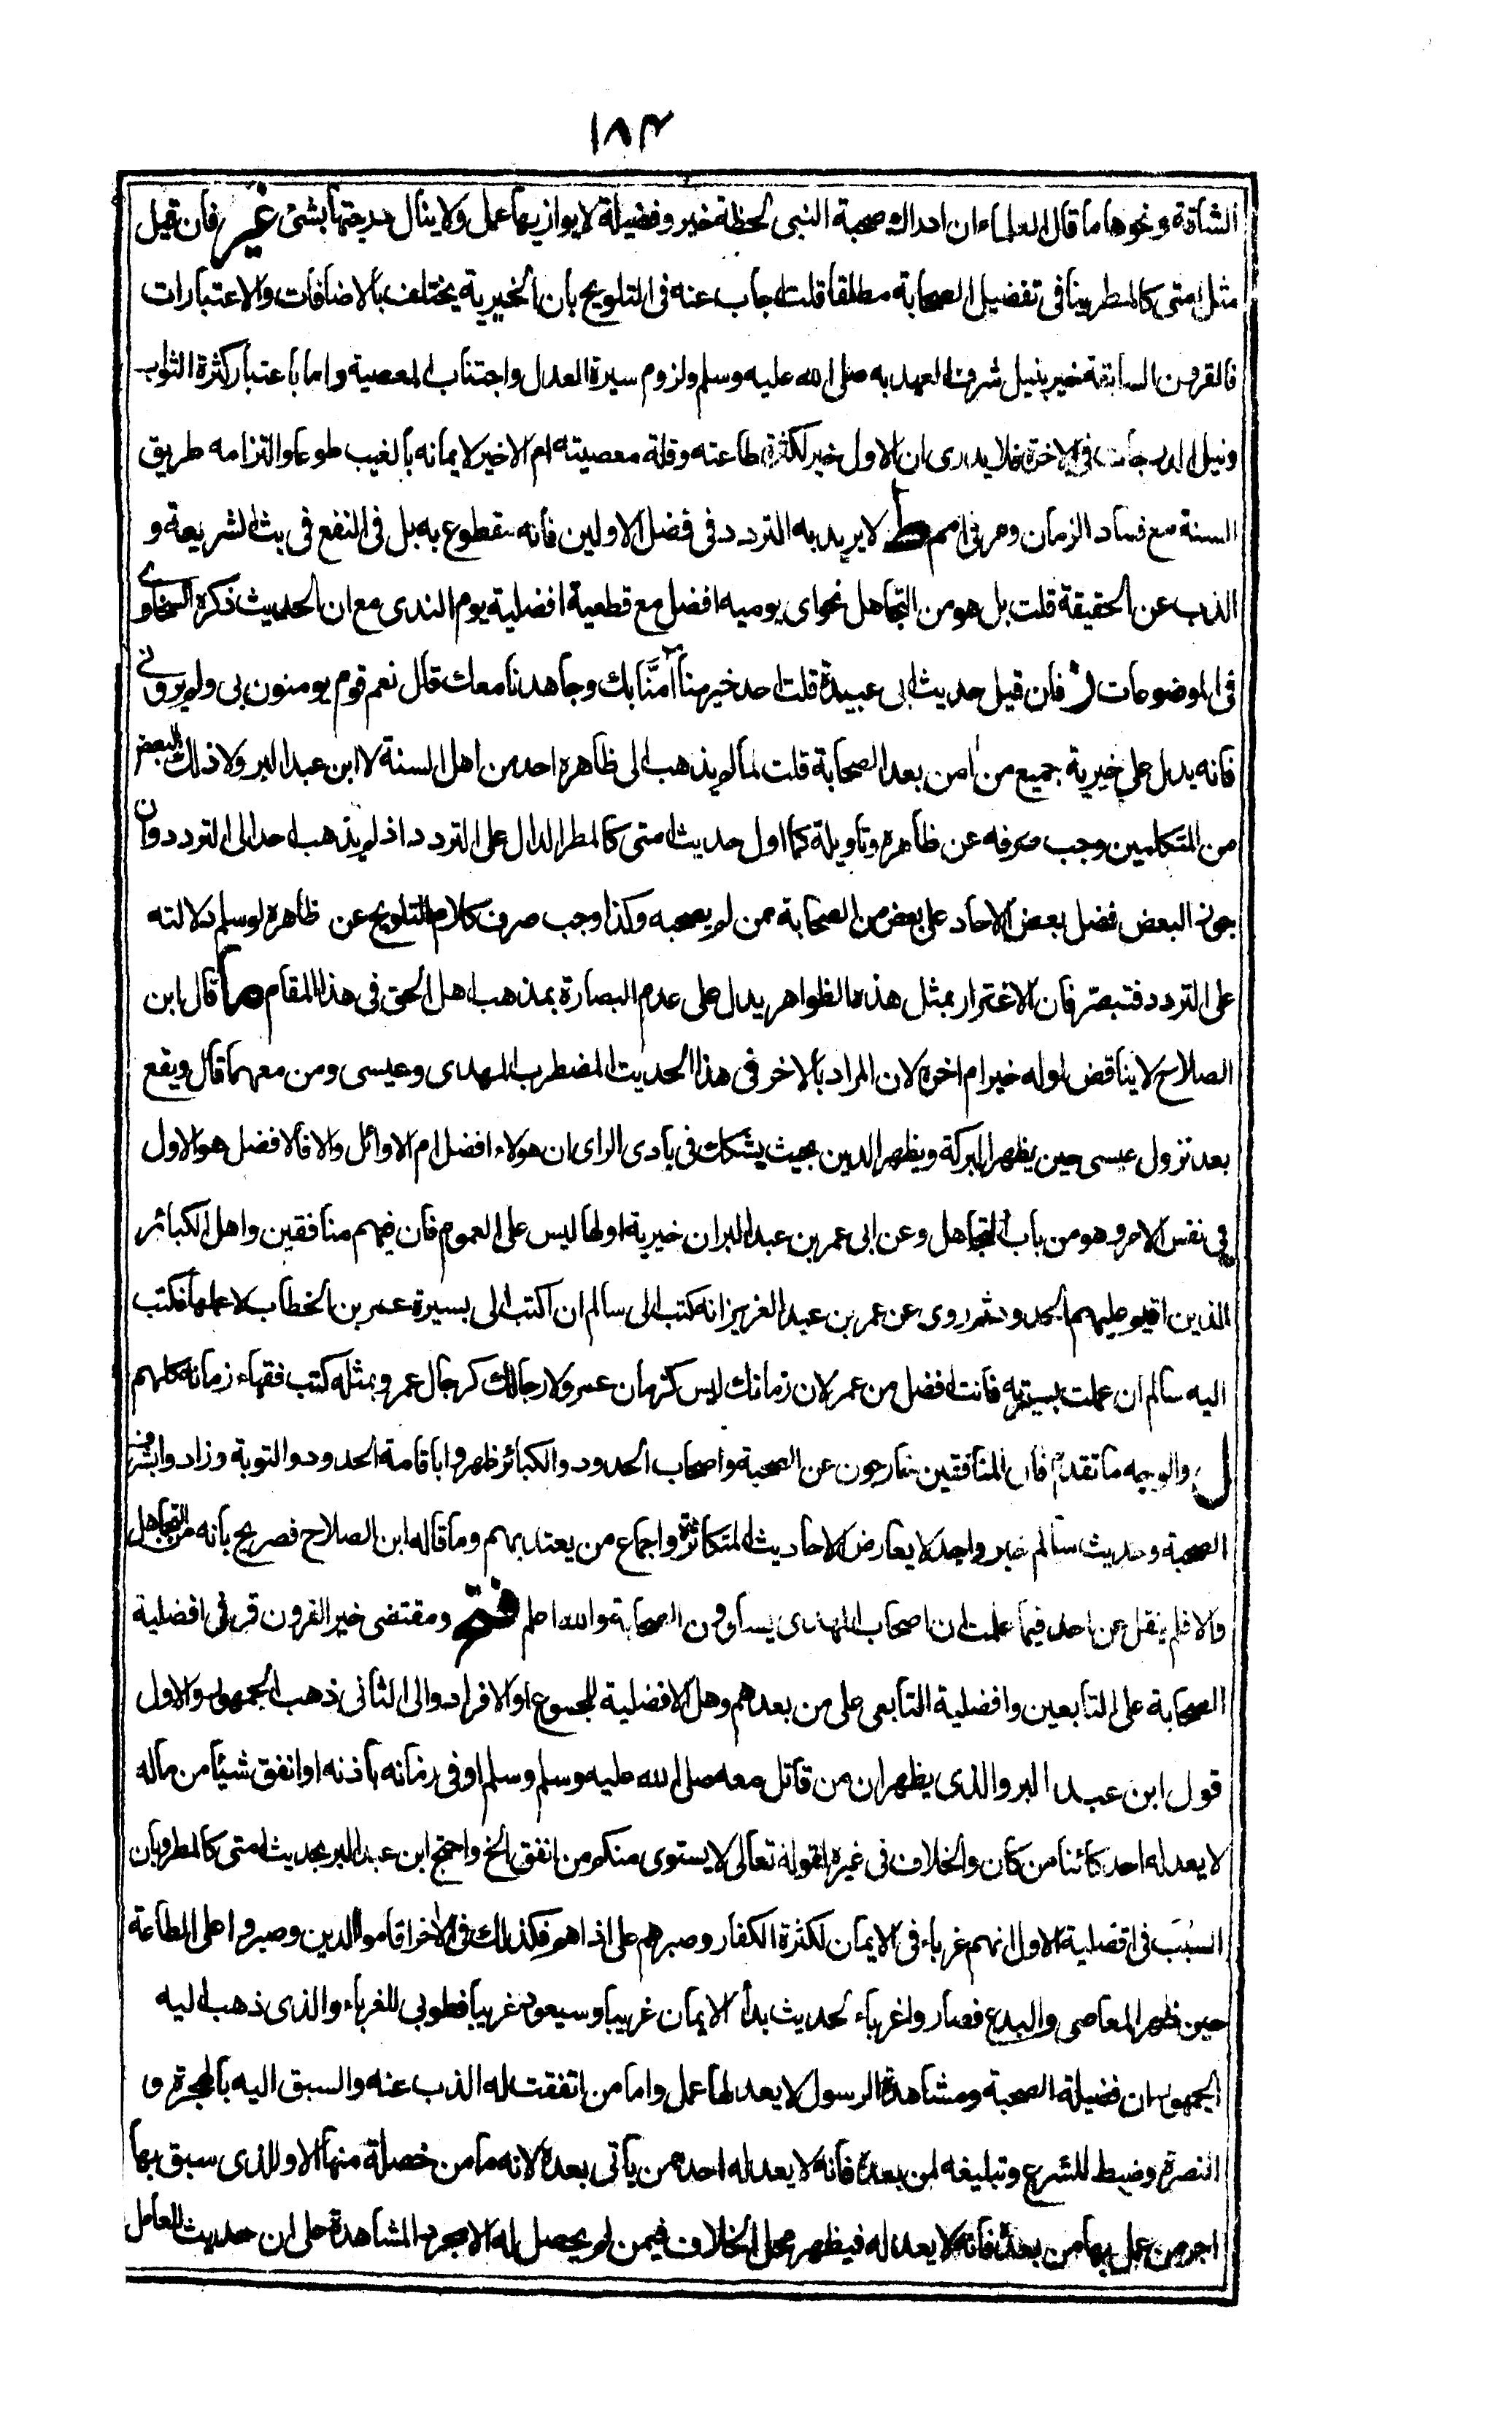 ١٨٣
الشاقة ونحوها ما قال العلماء ان ادراك صحبة النبى لحظة خير وفضيلة لا يوازيها عمل ولا ينال درجتها بشئ غير فان قيل
مثل امتى كالمطر ينافى تفضيل الصحابة مطلقا قلت اجاب عنه فى التلويح بان الخيرية يختلف بالاضافات والاعتبارات
فالقرون السابقة خير بنيل شرف العهد به صلى الله عليه وسلم ولزوم سيرة العدل واجتناب المعصية واما باعتبار كثرة الثواب
ونيل الدرجات فى الاخرة فلا يدرى ان الاول خير لكثرة طاعته وقلة معصيته ام الاخير لايمانه بالغيب طوعا والتزامه طريق
السنة مع فساد الزمان ومر فى امم ط لا يريد به التردد فى فضل الاولين فانه مقطوع به بل فى النفع فى بث الشريعة و
الذب عن الحقيقة قلت بل هو من التجاهل نحو اى يوميه افضل مع قطعية افضلية يوم الندى مع ان الحديث ذكره السخاوے
فى الموضوعات فان قيل حديث ابى عبيدة قلت احد خير منا آمنّا بك وجاهدنا معك قال نعم قوم يومنون بى ولم يرونے
فانه يدل على خيرية جميع من امن بعد الصحابة قلت لما لم يذهب الى ظاهره احد من اهل السنة لا ابن عبد البر ولا ذلك البعض
من المتكلمين وجب صرفه عن ظاهره وتاويله كما اول حديث امتى كالمطر الدال على التردد اذ لم يذهب احد الى التردد وان
جوز البعض فضل بعض الاحاد على بعض من الصحابة ممن لم يصحبه وكذا وجب صرف كلام التلويح عن ظاهره لو سلم دلالته
على التردد فتبصر فان الاغترار بمثل هذه الظواهر يدل على عدم البصارة بمذهب اهل الحق فى هذا المقام ما قال ابن
الصلاح لا يناقض اوله خير ام اخره لان المراد بالاخر فى هذا الحديث المضطرب المهدى وعيسى ومن معهما قال ويقع
بعد نزول عيسى حين يظهر البركة ويظهر الدين بحيث يشك فى بادى الراى ان هولاء افضل ام الاوائل والا فالافضل هو الاول
فى نفس الامر وهو من باب التجاهل وعن ابى عمر بن عبد البر ان خيرية اولها ليس على العموم فان فيهم منافقين واهل الكبائر
الذين اقيم عليهم الحدود ثم روى عن عمر بن عبد العزيز انه كتب الى سالم ان اكتب الى بسيرة عمر بن الخطاب لاعملها فكتب
اليه سالم ان عملت بسيرته فانت افضل من عمر لان زمانك ليس كزمان عمر ولا رجالك كرجال عمر وبمثله كتب فقهاء زمانه كلهم
ل والوجه ما تقدم فان المنافقين خارجون عن الصحبة واصحاب الحدود والكبائر ظهروا باقامة الحدود والتوبة وزادوا بشرف
الصحبة وحديث سالم خبر واحد لا يعارض الاحاديث المتكاثرة واجماع من يعتد بهم وما قاله ابن الصلاح فصريح بانه من التجاهل
والا فلم ينقل عن احد فيما علمت ان اصحاب المهدى يساوون الصحابة والله اعلم فتح ومقتضى خير القرون قرنى افضلية
الصحابة على التابعين وافضلية التابعى على من بعدهم وهل الافضلية للمجموع او الافراد والى الثانى ذهب الجمهور والاول
قول ابن عبد البر والذى يظهر ان من قاتل معه صلى الله عليه وسلم وسلم او فى زمانه باذنه او انفق شيئا من ماله
لا يعدله احد كائنا من كان والخلاف فى غيره لقوله تعالى لا يستوى منكم من انفق الخ واحتج ابن عبد البر بحديث امتى كالمطر وبان
السبب فى افضلية الاول انهم غرباء فى الايمان لكثرة الكفار وصبرهم على اذاهم فكذلك فى الاخر اقاموا الدين وصبروا على الطاعة
حين ظهر المعاصى والبدع فصاروا غرباء لحديث بدأ الايمان غريبا وسيعود غريبا فطوبى للغرباء والذى ذهب اليه
الجمهور ان فضيلة الصحبة ومشاهدة الرسول لا يعدلها عمل واما من اتفقت له الذب عنه والسبق اليه بالهجرة و
النصرة وضبط للشرع وتبليغه لمن بعده فانه لا يعدله احد ممن ياتى بعده لانه ما من خصلة منها الا وللذى سبق بها
اجر من عمل بها من بعده فانه لا يعدله فيظهر محل الخلاف فيمن لم يحصل له الا مجرد المشاهدة على ان حديث للعامل